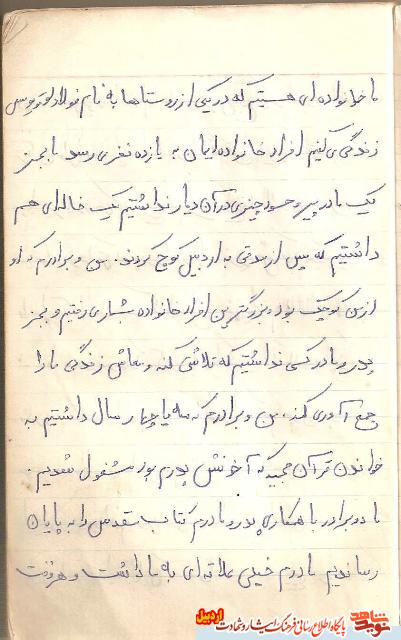 ما خانواده ای هستیم که در یکی از روستاها به نام فولادلو قویوسی
زندگی می کنیم افراد خانواده ایمان به یازده نفری رسد ما بجز
یک مادر پیر و حسود چیزی در آن دیار نداشتیم یک خاله ای هم
داشتیم که پس از مدتی به اردبیل کوچ کردند. من و برادرم که او
از من کوچک بود و بزرگترین افراد خانواده بشماری رفتیم و بجز
پدر و مادر کسی نداشتیم که تلاش کند و معاش زندگی ما را
جمع آوری کند. من و برادرم که سه یا چهار سال داشتیم به
خواندن قرآن مجید که آخوندش پدرم بود مشغول شدیم.
ما دو برادر با همکاری پدر و مادرم کتاب مقدس را به پایان
رساندیم مادرم خیلی علاقه ای به ما داشت و هر وقت
نوید شاهد
پایگاه اطلاع رسانی فرهنگ ایثار و شهادت
اردبیل